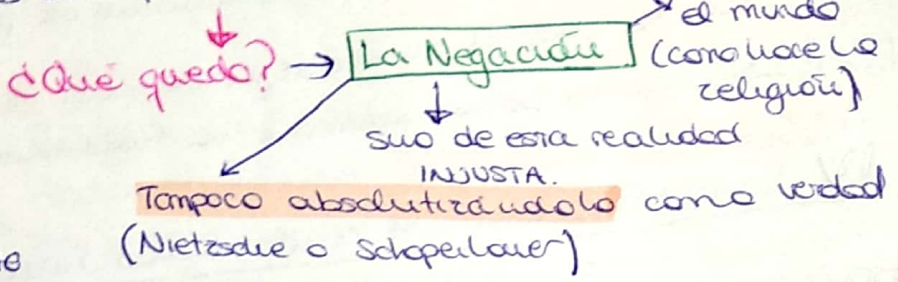 el mundo
¿Qué queda? → La Negación (como hace la
religión)
sino de esta realidad
INJUSTA.
Tampoco absolutizándolo como verdad
(Nietzsche o Schopenhauer)